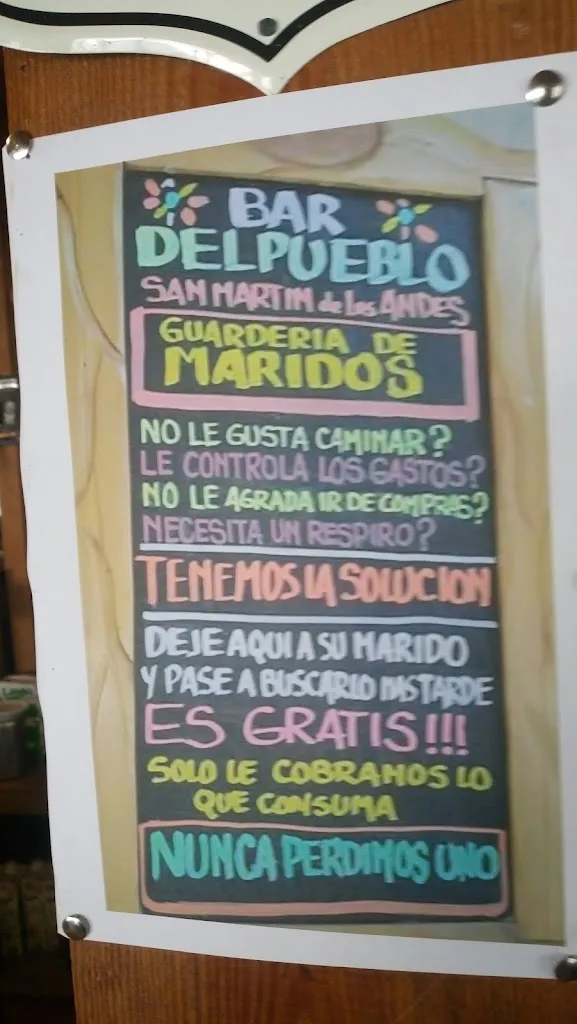 BAR
DEL PUEBLO
SAN MARTIN de Los ANDES
GUARDERIA DE
MARIDOS
NO LE GUSTA CAMINAR?
LE CONTROLA LOS GASTOS?
NO LE AGRADA IR DE COMPRAS?
NECESITA UN RESPIRO?
TENEMOS LA SOLUCION
DEJE AQUI A SU MARIDO
Y PASE A BUSCARLO MAS TARDE
ES GRATIS!!!
SOLO LE COBRAMOS LO
QUE CONSUMA
NUNCA PERDIMOS UNO